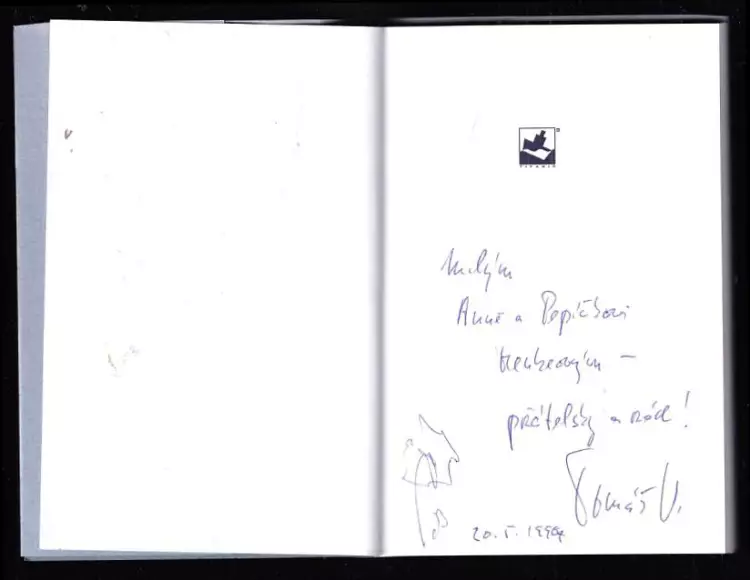 TITANIC
Milým
Anně a Pepíčkovi
–
přátelsky a rád!
Tomáš V.
20. 5. 1994